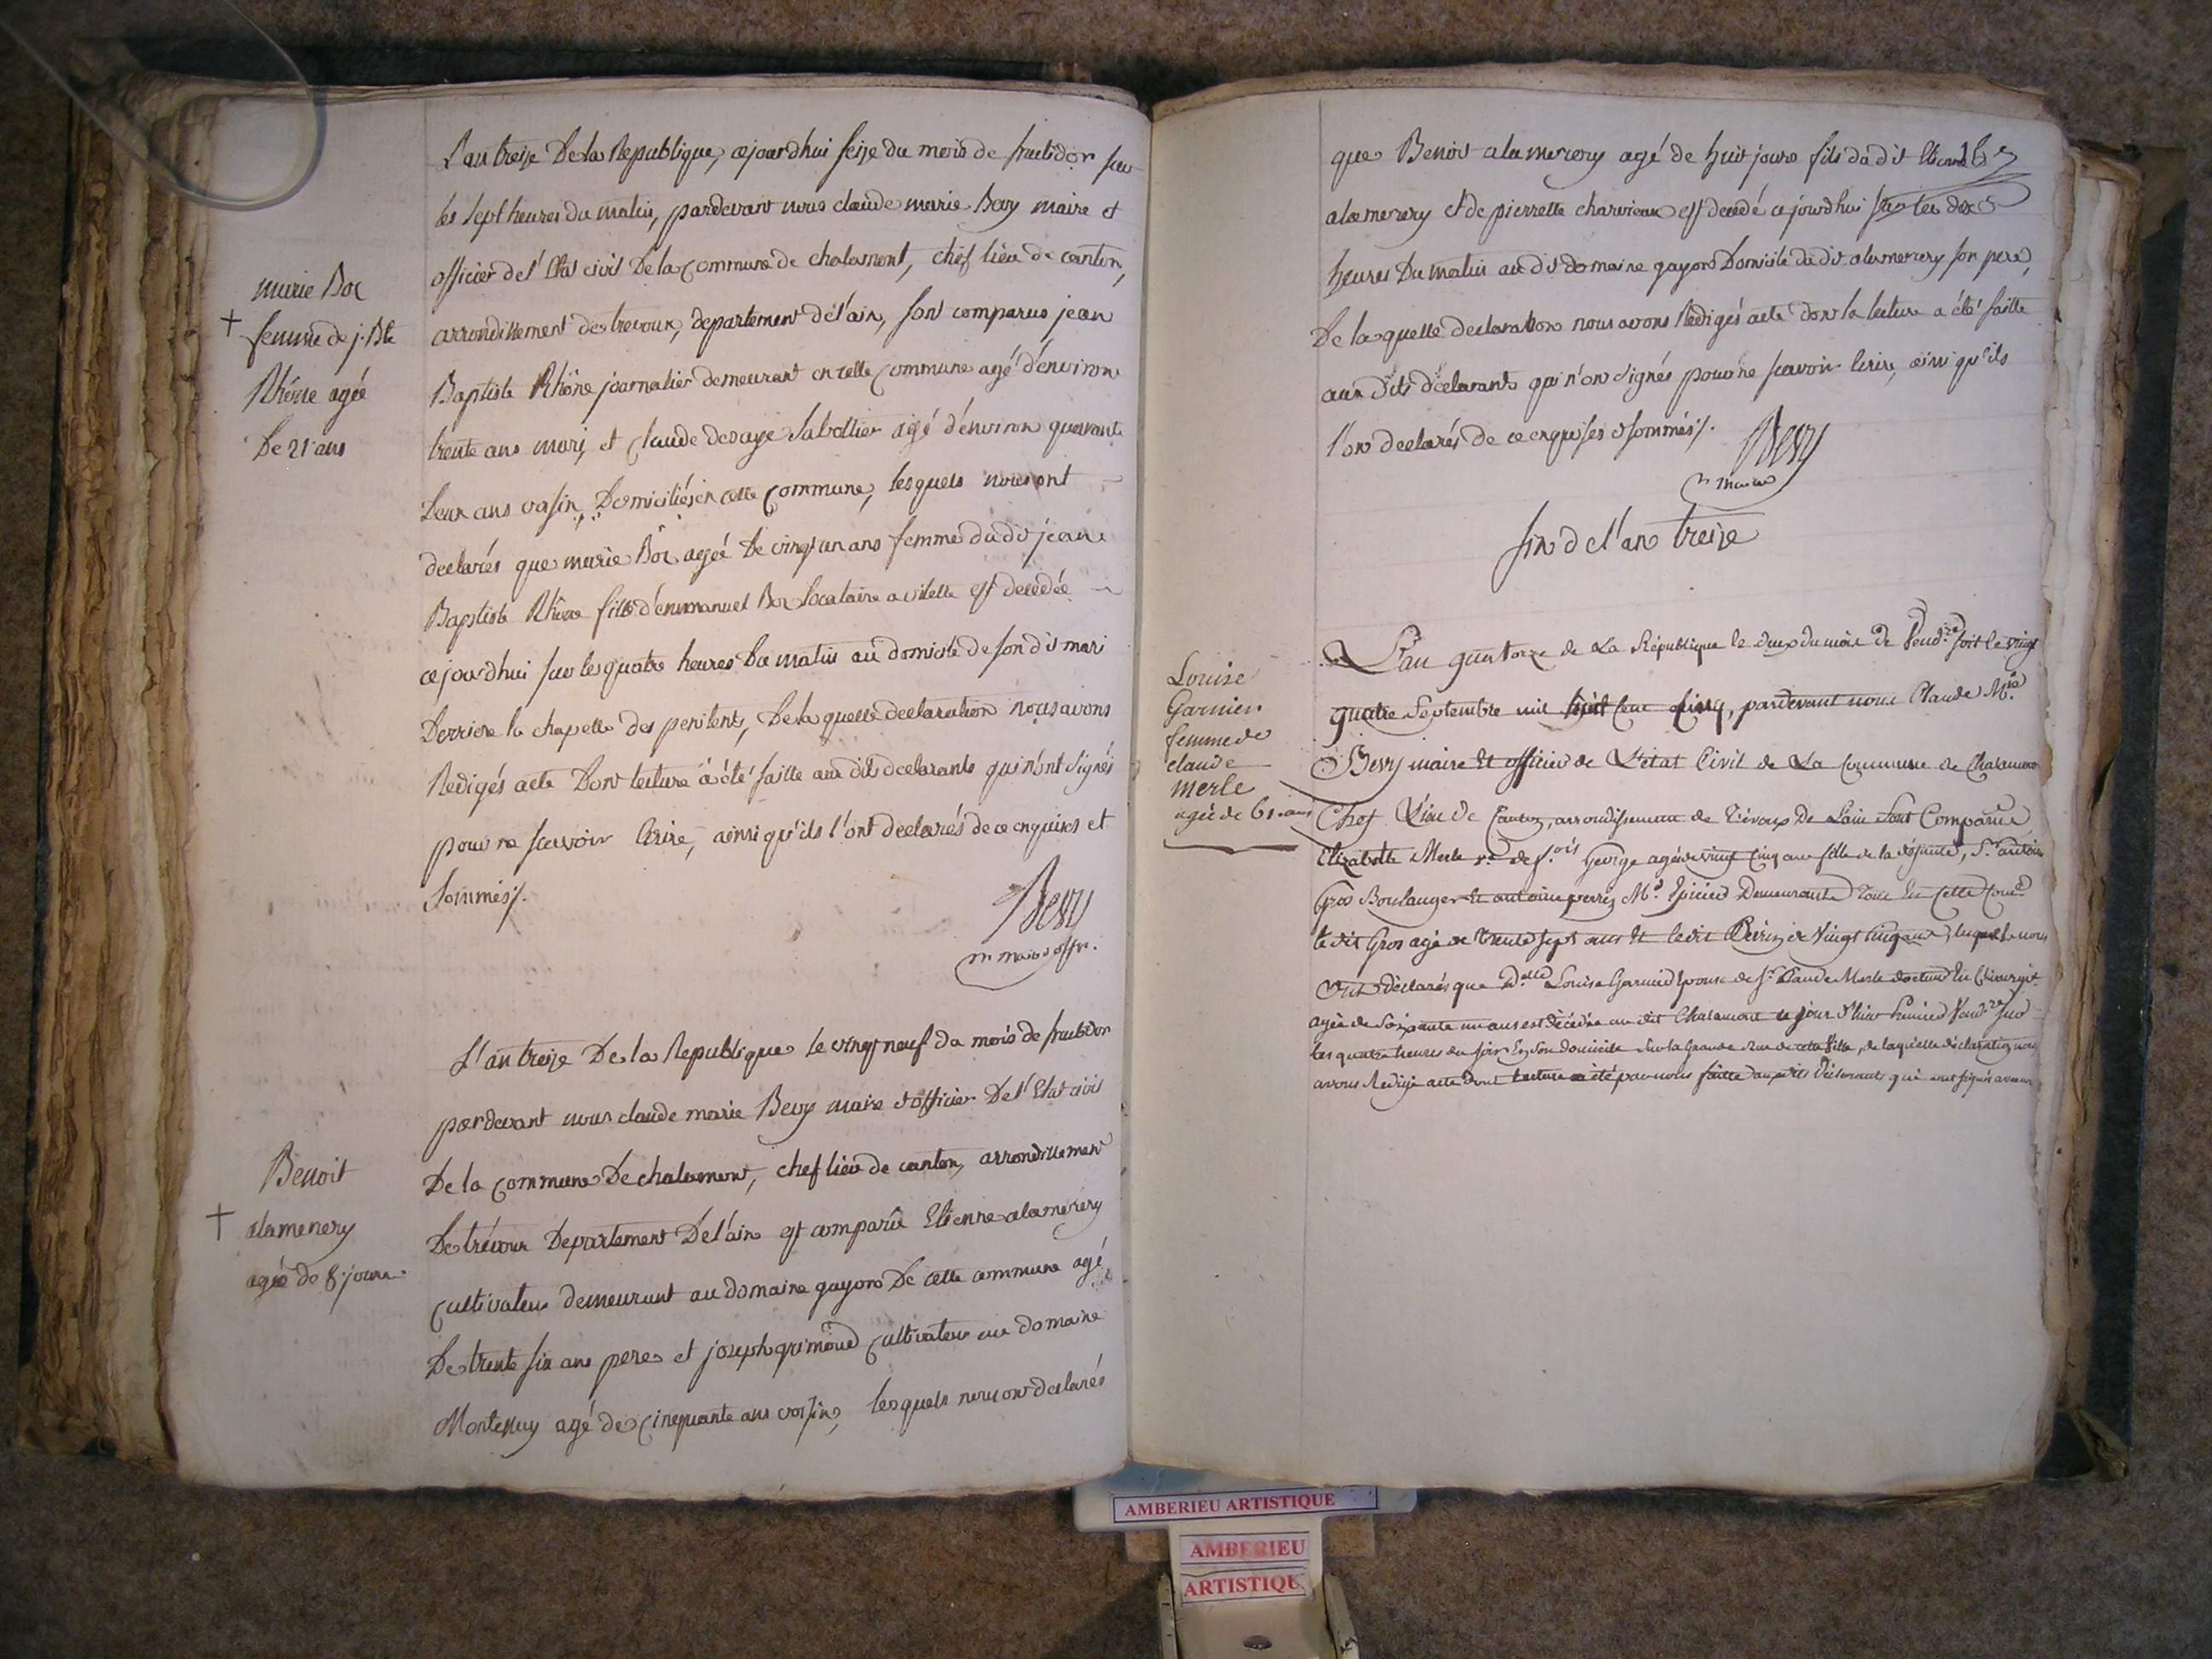 L'an treize De la Republique, cejourdhui seize du mois de fructidor sur
les sept heures du matin, pardevant nous claude marie Bevy maire et
officier de l'Etat civil De la Commune de chalamont, chef lieu de canton,
arrondissement de trevoux, departement de l'ain, sont comparus jean
Baptiste Rhône journalier demeurant en cette Commune agé d'environ
trente ans mari, et Claude desaye Sabottier agé d'environ quarante
deux ans voisin, Domiciliés en cette Commune, lesquels nous ont
declarés que marie Boz agée de vingt un ans femme du dit jean
Baptiste Rhône fille d'emmanuel Boz locataire a vilette est decédée
cejourdhui sur les quatre heures du matin au domicile de son dit mari
Derriere la chapelle des penitents, De la quelle declaration nous avons
Redigés acte Dont lecture a été faitte aux dits declarants qui n'ont signés
pour ne scavoir Ecrire, ainsi qu'ils l'ont declarés de ce enquises et
sommés /.
Bevy
m maire offr.
marie Boz
† femme de j. Bte
Rhône agée
De 21 ans
L'an treize De la Republique le vingt neuf du mois de fructidor
pardevant nous claude marie Bevy maire et officier De l'Etat civil
De la Commune De chalamont, chef lieu de canton, arrondissement
De trévoux Departement De l'ain est comparû Etienne alamercery
Cultivateur demeurant au domaine gayon De cette commune agé
De trente six ans pere et joseph grimoud Cultivateur au domaine
Montessuy agé de Cinquante ans voisin, lesquels nous ont declarés
Benoit
† alamercery
agée de 8. jours.
que Benoit alamercery agé de huit jours fils du dit Etienne
alamercery et de pierrette charvieux est decedé cejourdhui sur les dix
heures Du matin au dit domaine gayon Domicile du dit alamercery son pere,
De la quelle declaration nous avons Redigés acte dont la lecture a été faitte
aux Dits declarants qui n'ont signés pour ne scavoir Ecrire, ainsi qu'ils
l'ont declarés de ce enquises et sommés /.
Bevy
m maire
fin de l'an treize
L'an quatorze de La République le deux du mois de Vend.re soit le vingt
quatre Septembre mil huit Cent Cinq, pardevant nous Claude M.ie
Bevy maire Et officier de L'état Civil de La Commune de Chalamont
Chef Lieu de Canton, arrondissement de Trévoux De Lain Sont Comparus
Elizabeth Merle v.e de f.ois George agée de vingt Cinq ans fille de la défunte, S.r antoine
Gros Boulanger Et antoine perrin M.d Epicier Demeurants tous En Cette Com.e
le dit Gros agé de Trente Sept ans Et le dit Perrin de Vingt Cinq ans, lesquels nous
Ont déclarés que D.elle Louise Garnier Epouse de S.r Claude Merle docteur En Chirurgie
agée de Soixante un ans est décédée au dit Chalamont ce jour d'hier Premier Vend.re sur
les quatre heures du soir En Son domicile Sur la Grande Rue de cette Ville, de laquelle déclaration nous
avons Redigé acte dont lecture a été par nous faitte aux dits Déclarants qui ont signés avec nous
Louise
Garnier
femme de
claude
merle
agée de 61. ans
AMBERIEU ARTISTIQUE
AMBERIEU
ARTISTIQU